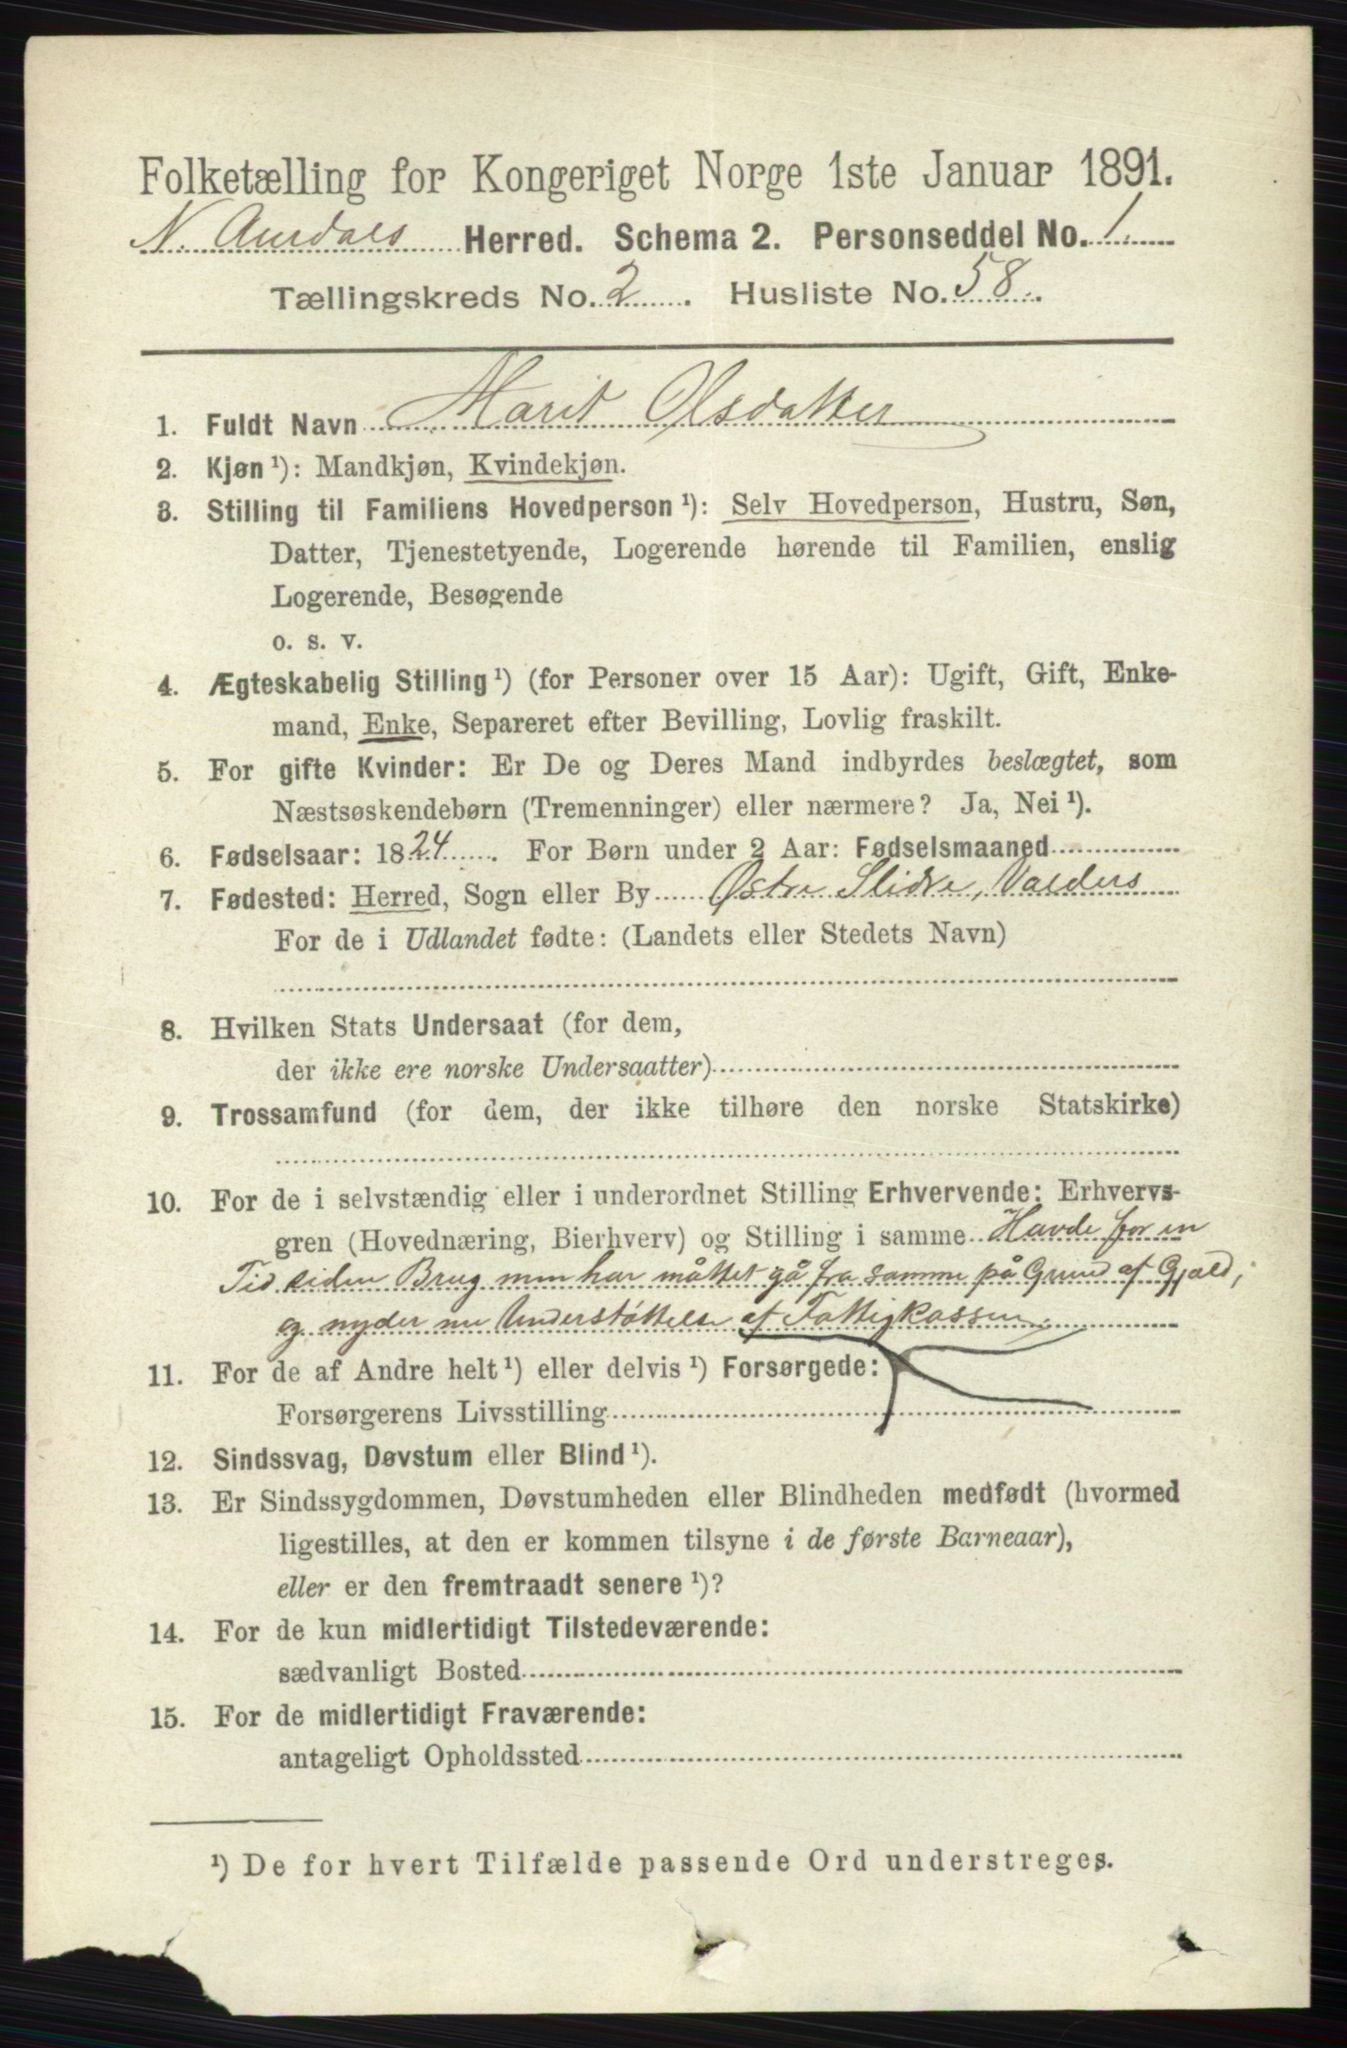 Folketælling for Kongeriget Norge 1ste Januar 1891.
N. Aurdals Herred. Schema 2. Personseddel No. 1.
Tællingskreds No. 2. Husliste No. 58.
1. Fuldt Navn Marit Olsdatter
2. Kjøn ¹): Mandkjøn, Kvindekjøn.
3. Stilling til Familiens Hovedperson ¹): Selv Hovedperson, Hustru, Søn,
Datter, Tjenestetyende, Logerende hørende til Familien, enslig
Logerende, Besøgende
o. s. v.
4. Ægteskabelig Stilling ¹) (for Personer over 15 Aar): Ugift, Gift, Enke-
mand, Enke, Separeret efter Bevilling, Lovlig fraskilt.
5. For gifte Kvinder: Er De og Deres Mand indbyrdes beslægtet, som
Næstsøskendebørn (Tremenninger) eller nærmere? Ja, Nei ¹).
6. Fødselsaar: 1824. For Børn under 2 Aar: Fødselsmaaned
7. Fødested: Herred, Sogn eller By Østre Slidre, Valders
For de i Udlandet fødte: (Landets eller Stedets Navn)
8. Hvilken Stats Undersaat (for dem,
der ikke ere norske Undersaatter)
9. Trossamfund (for dem, der ikke tilhøre den norske Statskirke)
10. For de i selvstændig eller i underordnet Stilling Erhvervende: Erhvervs-
gren (Hovednæring, Bierhverv) og Stilling i samme Havde for en
Tid siden Brug men har måttet gå fra samme på Grund af Gjæld;
og nyder nu Understøttelse af Fattigkassen.
11. For de af Andre helt ¹) eller delvis ¹) Forsørgede:
Forsørgerens Livsstilling
12. Sindssvag, Døvstum eller Blind ¹).
13. Er Sindssygdommen, Døvstumheden eller Blindheden medfødt (hvormed
ligestilles, at den er kommen tilsyne i de første Barneaar),
eller er den fremtraadt senere ¹)?
14. For de kun midlertidigt Tilstedeværende:
sædvanligt Bosted
15. For de midlertidigt Fraværende:
antageligt Opholdssted
¹) De for hvert Tilfælde passende Ord understreges.